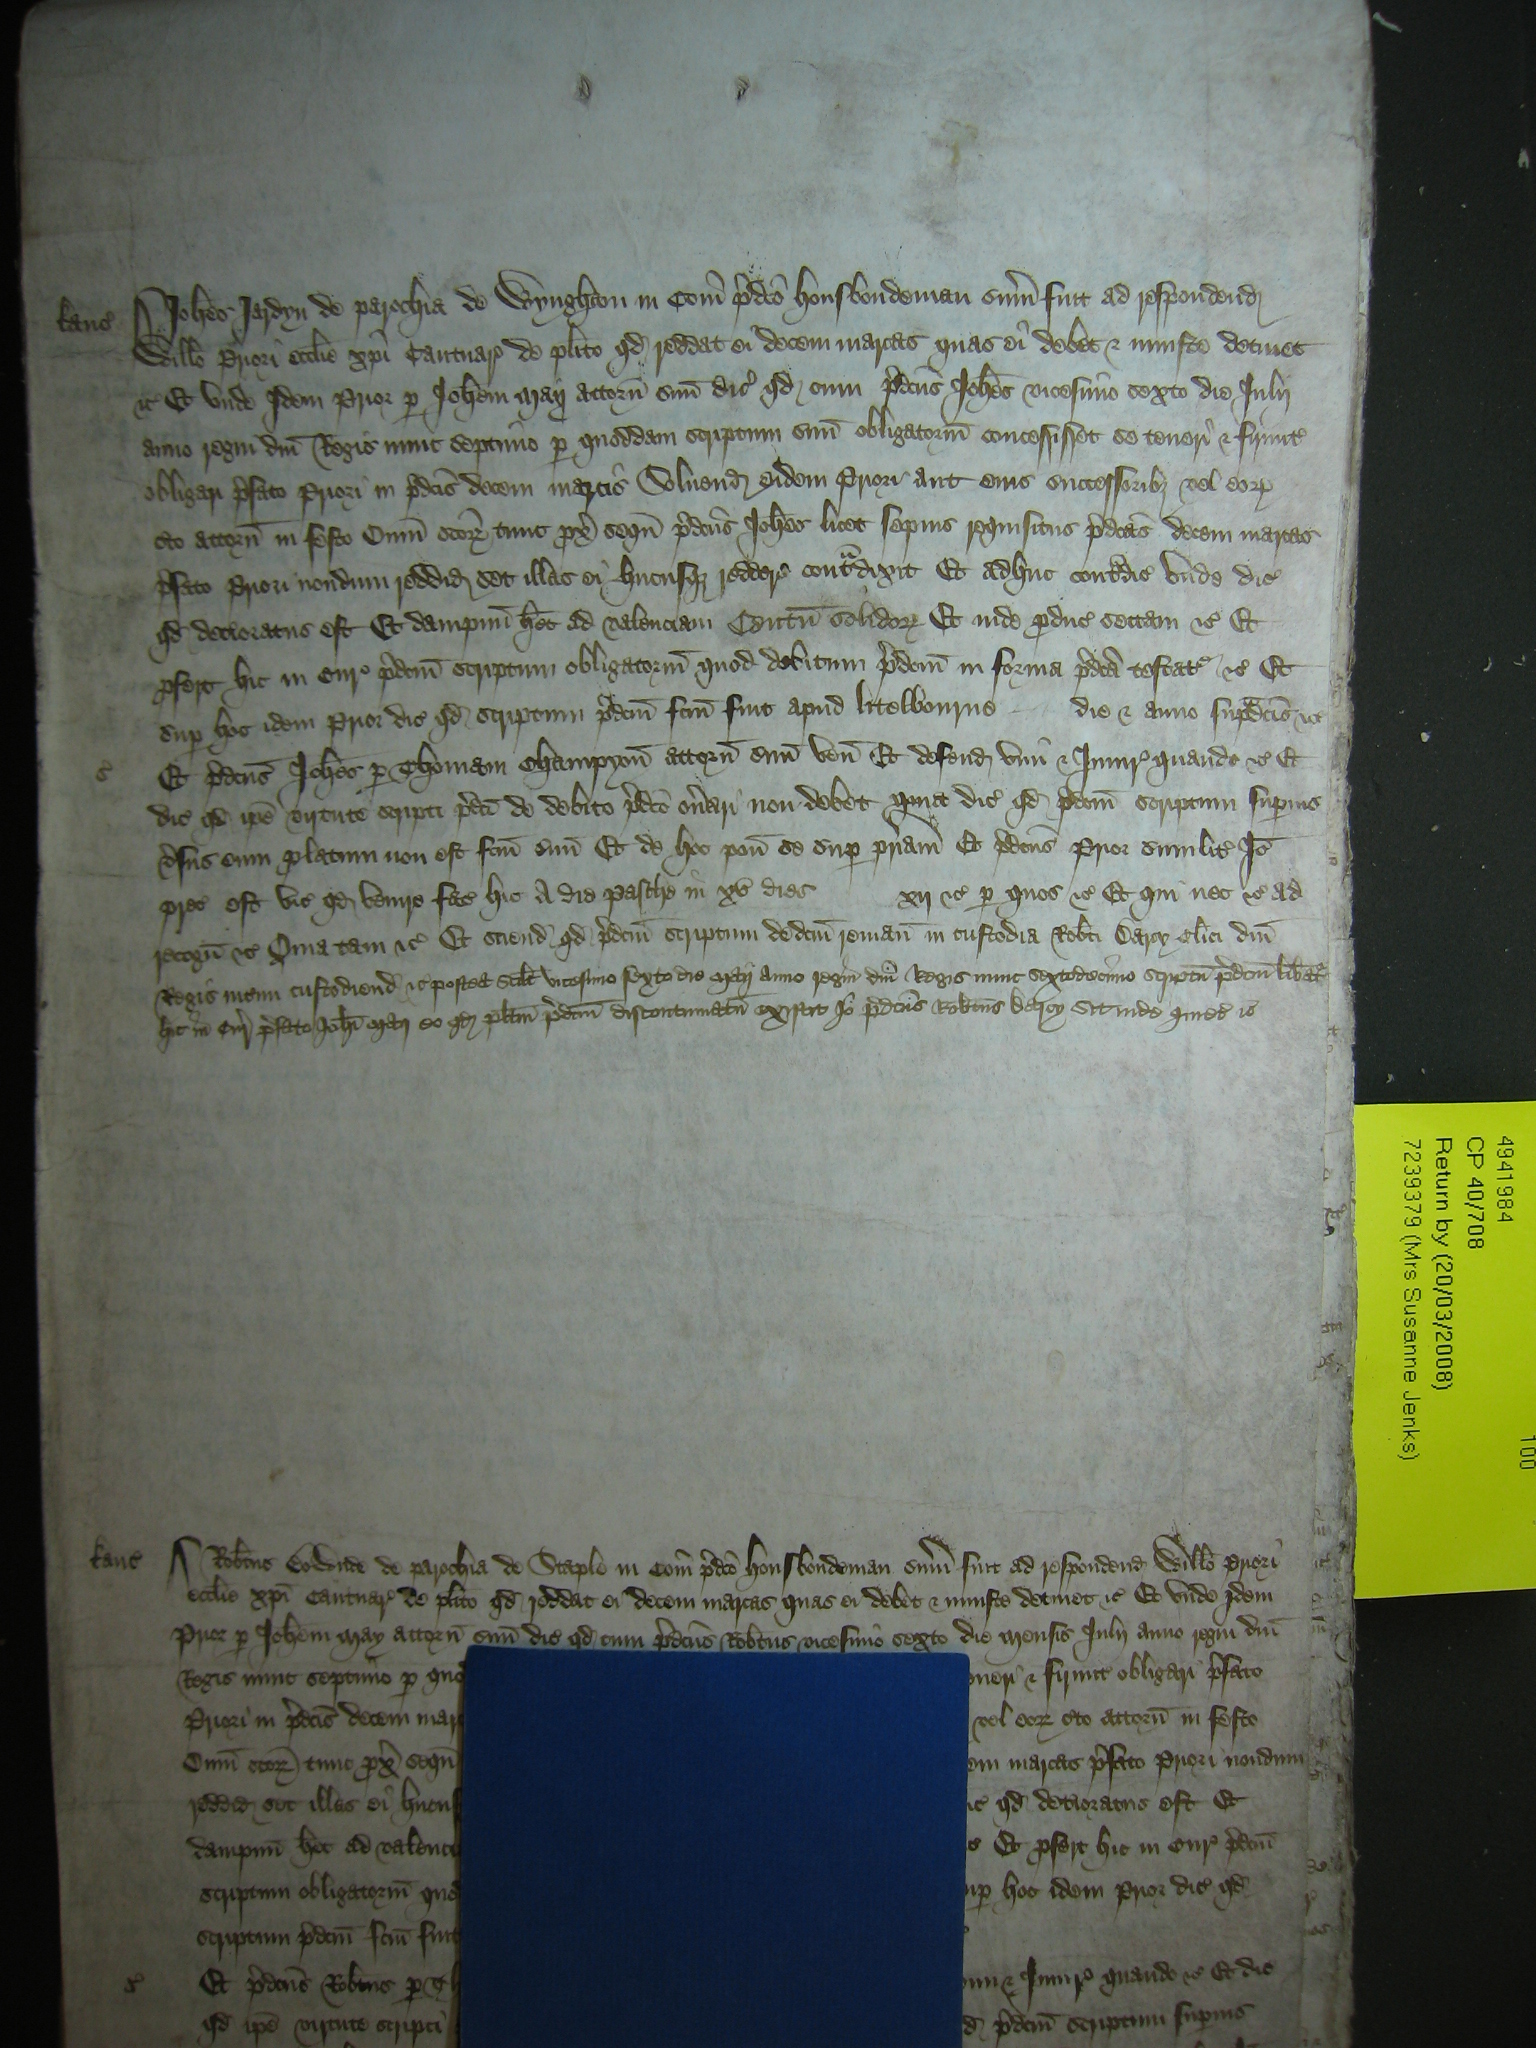 kanc Johes Jardyn de parochia de Wynghm̄ in Com̄ p̄dco housbondeman sum̄ fuit ad respondend
Willo Priori ecclie xpī Cantuar de plito qd reddat ei decem marcas quas ei debet & iniuste detinet
&c Et unde idem Prior p Johem May attorn suū dic qd cum p̄dcus Johes vicesimo sexto die Julij
anno regni dnī Regis nunc septimo p quoddam scriptum suū obligatoriū concessisset se teneri & firmit
obligari p̄fato Priori in p̄dcis decem marcis Soluend eidem Priori aut eius successoribz vel eorz
cto attorn in festo Omī scorz tunc px sequ p̄dcus Johes licet sepius requisitus p̄dcas decem marcas
p̄fato Priori nondum reddid set illas ei hucusqz reddere contradixit Et adhuc contradic unde dic
qd deterioratus est Et dampnū het ad valenciam Centū solidorz Et inde pduc sectam &c Et
pfert hic in Cur p̄dcm scriptum obligatoriū quod debitum p̄dcm in forma p̄dca testatr &c Et
sup hoc idem Prior dic qd scriptum p̄dcm fcm fuit apud litelbourne die & anno sup̄dcis &c
Et p̄dcus Johes p Thomam Champyon attorn suū ven Et defend vim & Iniur quando &c Et
dic qd ipe virtute scripti p̄dci de debito p̄dco on̄ari non debet quia dic qd p̄dcm scriptum superius
vsus eum platum non est fcm suū Et de hoc pon se sup p̄riam Et p̄dcus Prior similit Io
prec est vic qd venire fac hic A die Pasche in xv dies xij &c p quos &c Et qui nec &c ad
recogn &c Quia tam &c Et sciend qd p̄dcm scriptum dedcm reman in custodia Robti Darcy clici dnī
Regis incun custodiend &c postea scilt vicesimo sexto die Maij anno regni dnī Regis nunc sextodecimo scriptū p̄dcm libatr
hic in Cur p̄fato Johi May eo qd plitm p̄dcm discontinuatū existit Io p̄dcus Robtus Darcy sit inde quiet &c
kanc Robtus Cowde de parochia de Staple in Com̄ p̄dco housbondeman sum̄ fuit ad respondend Willo Priori
ecclie xpī Cantuar de plito qd reddat ei decem marcas quas ei debet & iniuste detinet &c Et unde idem
Prior p Johem May attorn suū dic qd cum p̄dcus Robtus vicesimo sexto die mensis Julij anno regni dnī
Regis nunc septimo p quo teneri & firmit obligari p̄fato
Priori in p̄dcis decem marc vel eorz cto attorn in festo
Omī scorz tunc px sequ decem marcas p̄fato Priori nondum
reddid set illas ei hucus dic qd deterioratus est Et
dampnū het ad valenc &c Et pfert hic in Cur p̄dcm
scriptum obligatoriū quod sup hoc idem Prior dic qd
scriptum p̄dcm fcm fuit
Et p̄dcus Robtus p Th vim & Iniur quando &c Et dic
qd ipe virtute scripti qd p̄dcm scriptum superius
4941984
CP 40/708
Return by (20/03/2008)
7239379 (Mrs Susanne Jenks)
100